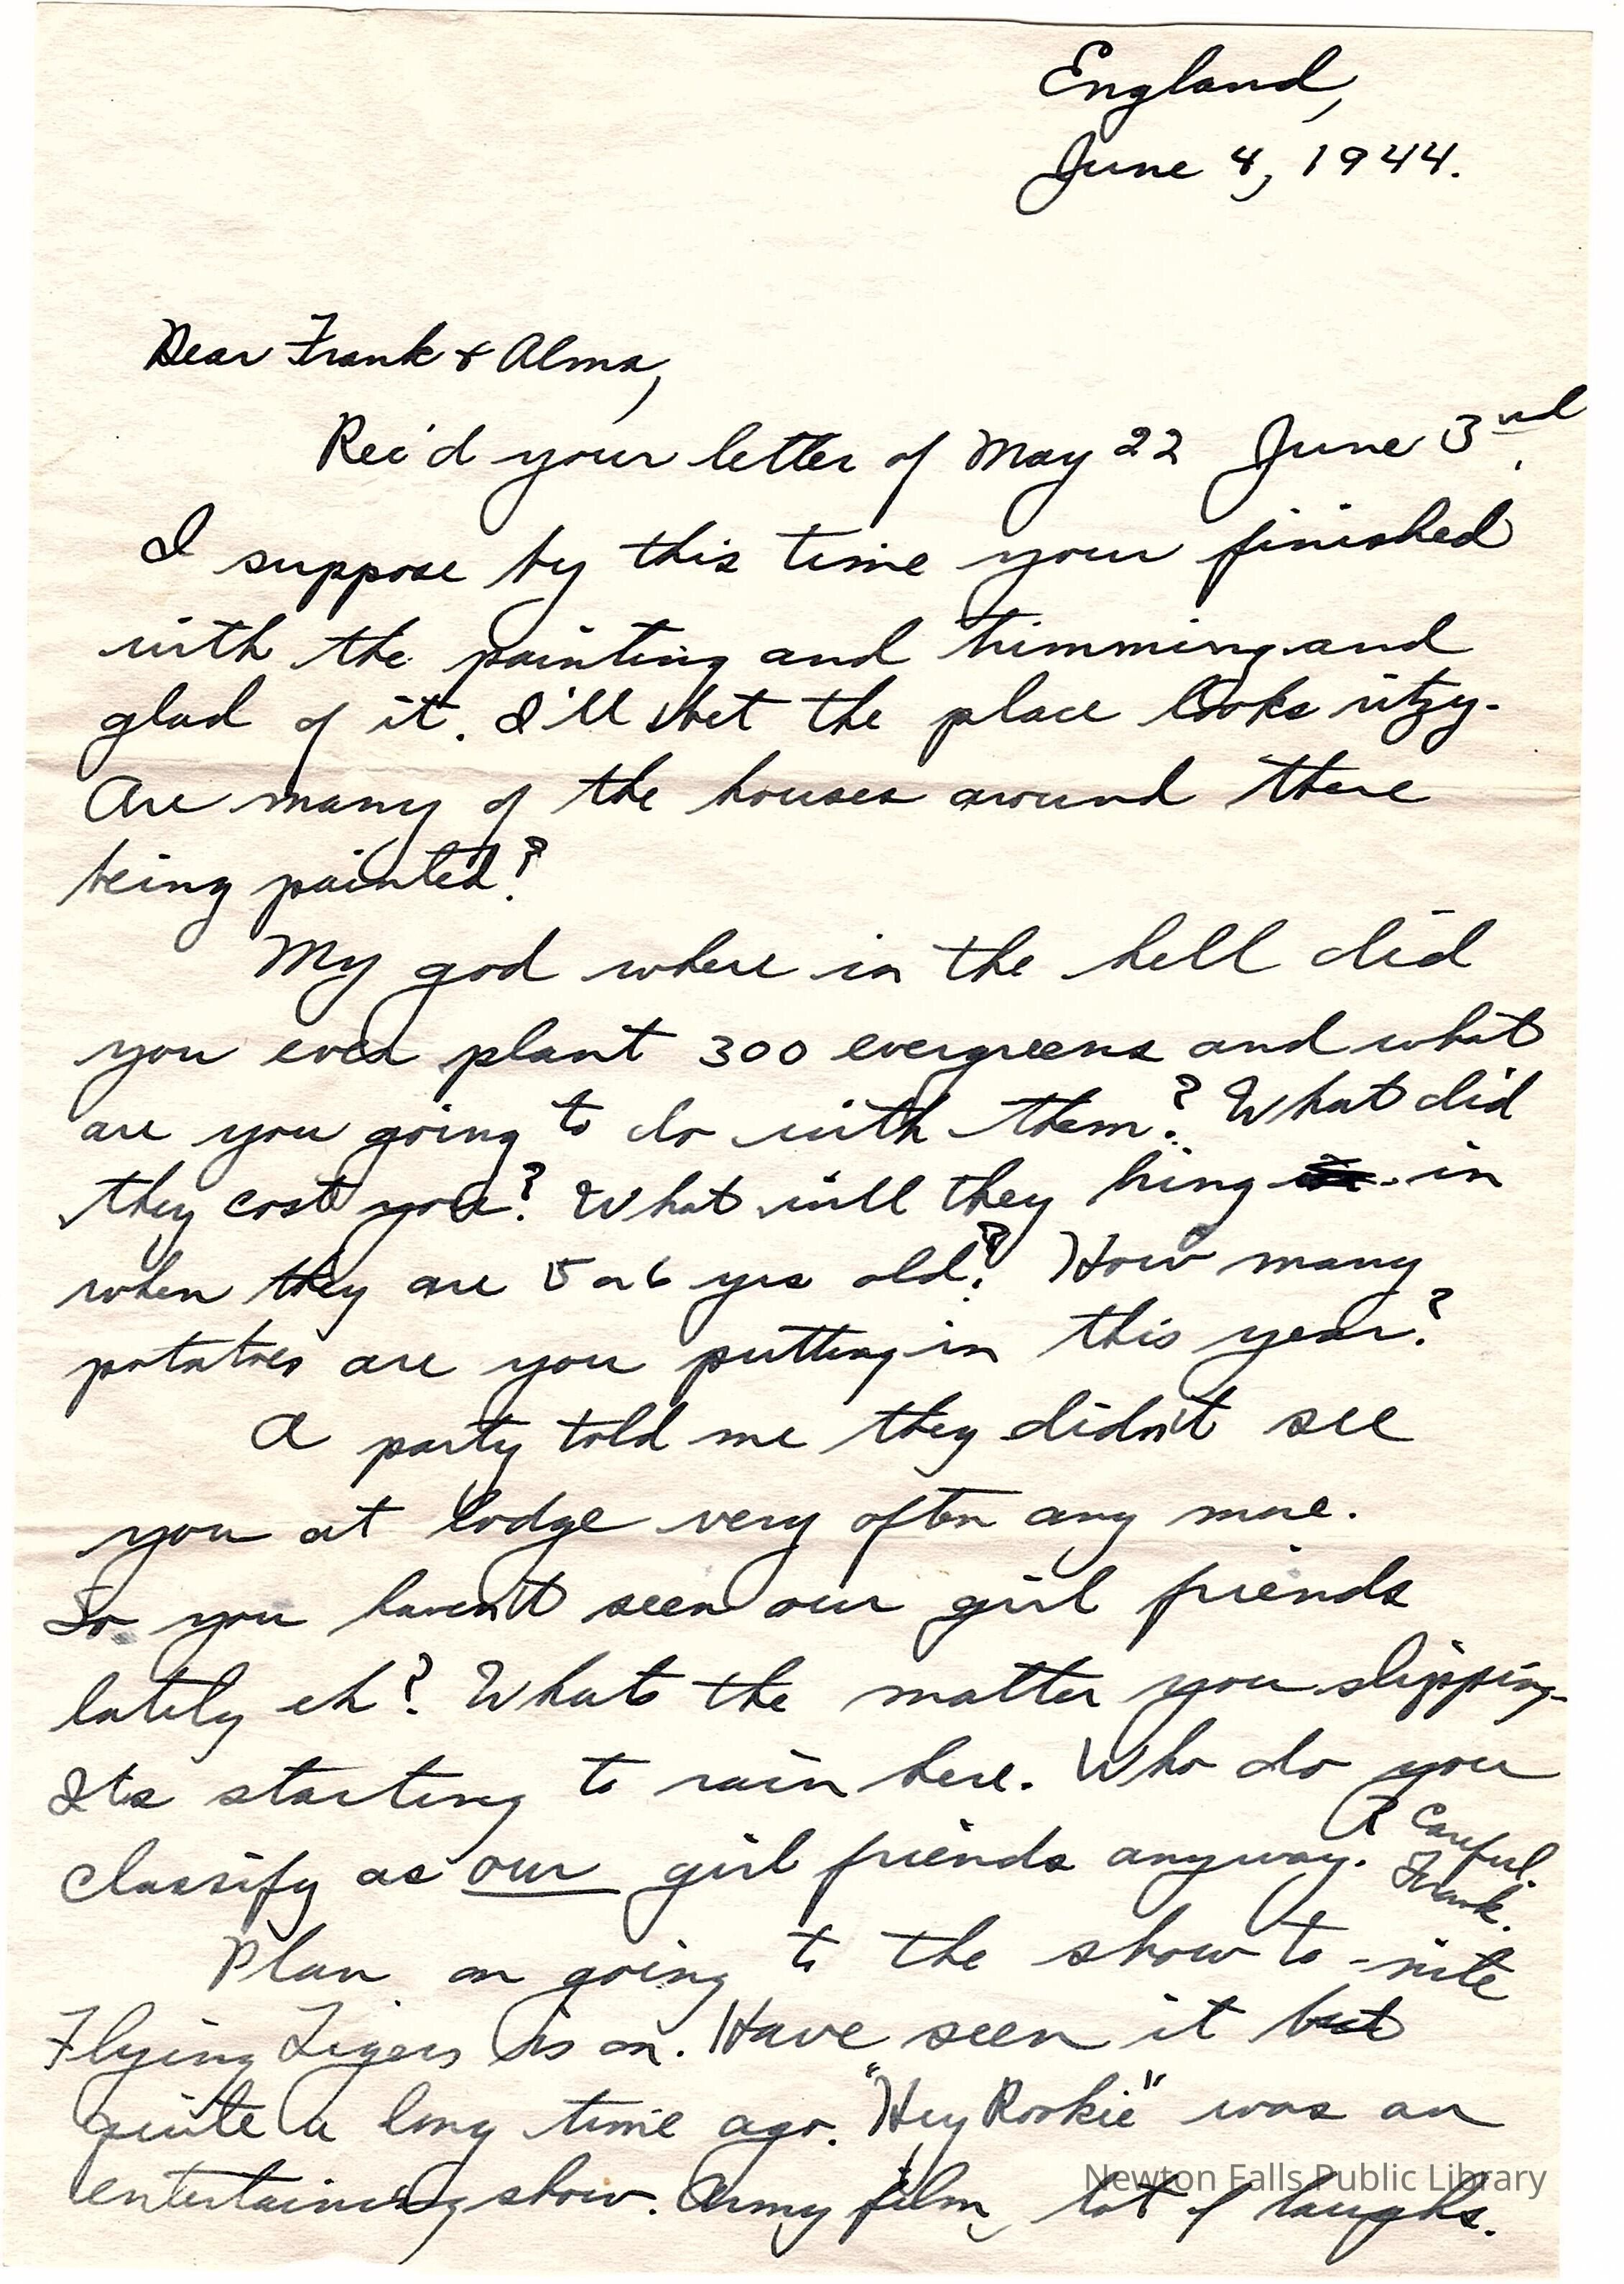 England,
June 4, 1944.
Dear Frank & Alma,
Rec'd your letter of May 22 June 3rd.
I suppose by this time your finished
with the painting and trimming and
glad of it. I'll bet the place looks ritzy.
Are many of the houses around there
being painted?
My god where in the hell did
you ever plant 300 evergreens and what
are you going to do with them? What did
they cost you? What will they bring in
when they are 5 or 6 yrs old? How many
potatoes are you putting in this year?
A party told me they didn't see
you at lodge very often any more.
So you haven't seen our girl friends
lately eh? Whats the matter you slipping.
Its starting to rain here. Who do you
classify as our girl friends anyway. ? Careful.
Frank.
Plan on going to the show to-nite
Flying Tigers is on. Have seen it but
quite a long time ago. "Hey Rookie" was an
entertaining show. Army film, lot of laughs.
Newton Falls Public Library